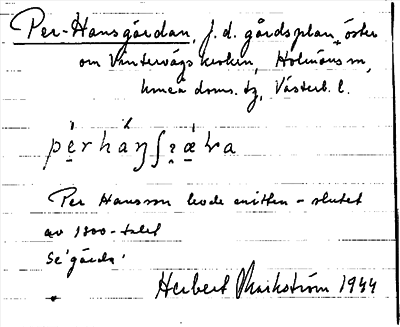 Per-Hansgårdan, f.d. gårdsplan öster
om Vintervägskyrkan, Holmöns sn,
Umeå doms. tg, Västerb. l.
Per Hansson levde mitten - slutet
av 1800-talet
Se gårda.
Herbert Markström 1944